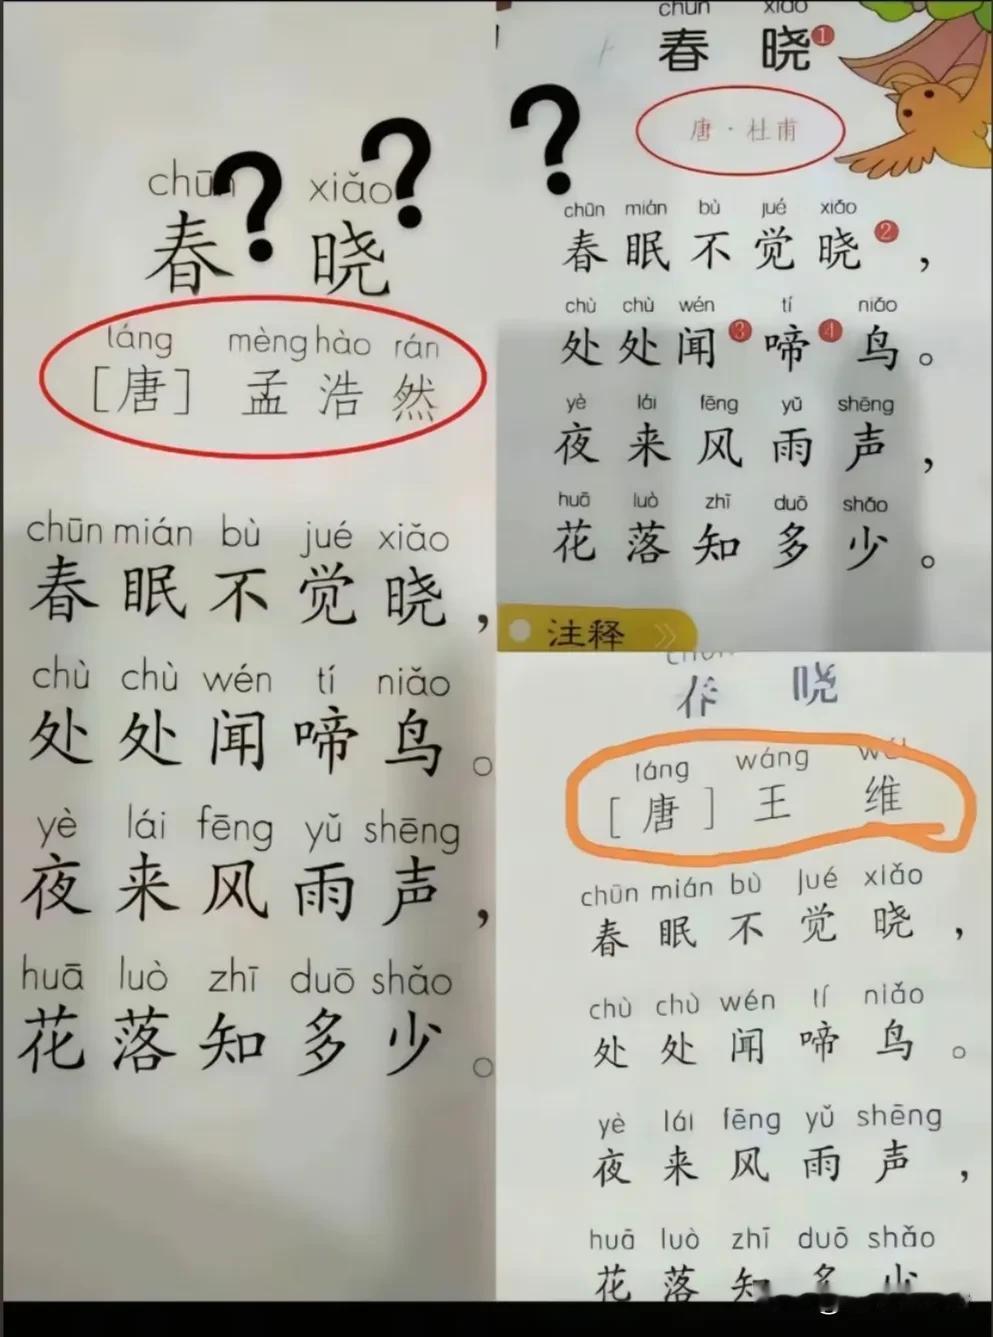 chūn xiǎo
春 晓
táng mèng hào rán
[唐] 孟 浩 然
chūn mián bù jué xiǎo
春 眠 不 觉 晓，
chù chù wén tí niǎo
处 处 闻 啼 鸟。
yè lái fēng yǔ shēng
夜 来 风 雨 声，
huā luò zhī duō shǎo
花 落 知 多 少。
? ? ?
chūn xiǎo
春 晓①
唐·杜甫
chūn mián bù jué xiǎo
春 眠 不 觉 晓②，
chù chù wén tí niǎo
处 处 闻③ 啼④ 鸟。
yè lái fēng yǔ shēng
夜 来 风 雨 声，
huā luò zhī duō shǎo
花 落 知 多 少。
注释
春 晓
táng wáng
[唐] 王 维
chūn mián bù jué xiǎo
春 眠 不 觉 晓，
chù chù wén tí niǎo
处 处 闻 啼 鸟。
yè lái fēng yǔ shēng
夜 来 风 雨 声，
huā luò zhī duō shǎo
花 落 知 多 少